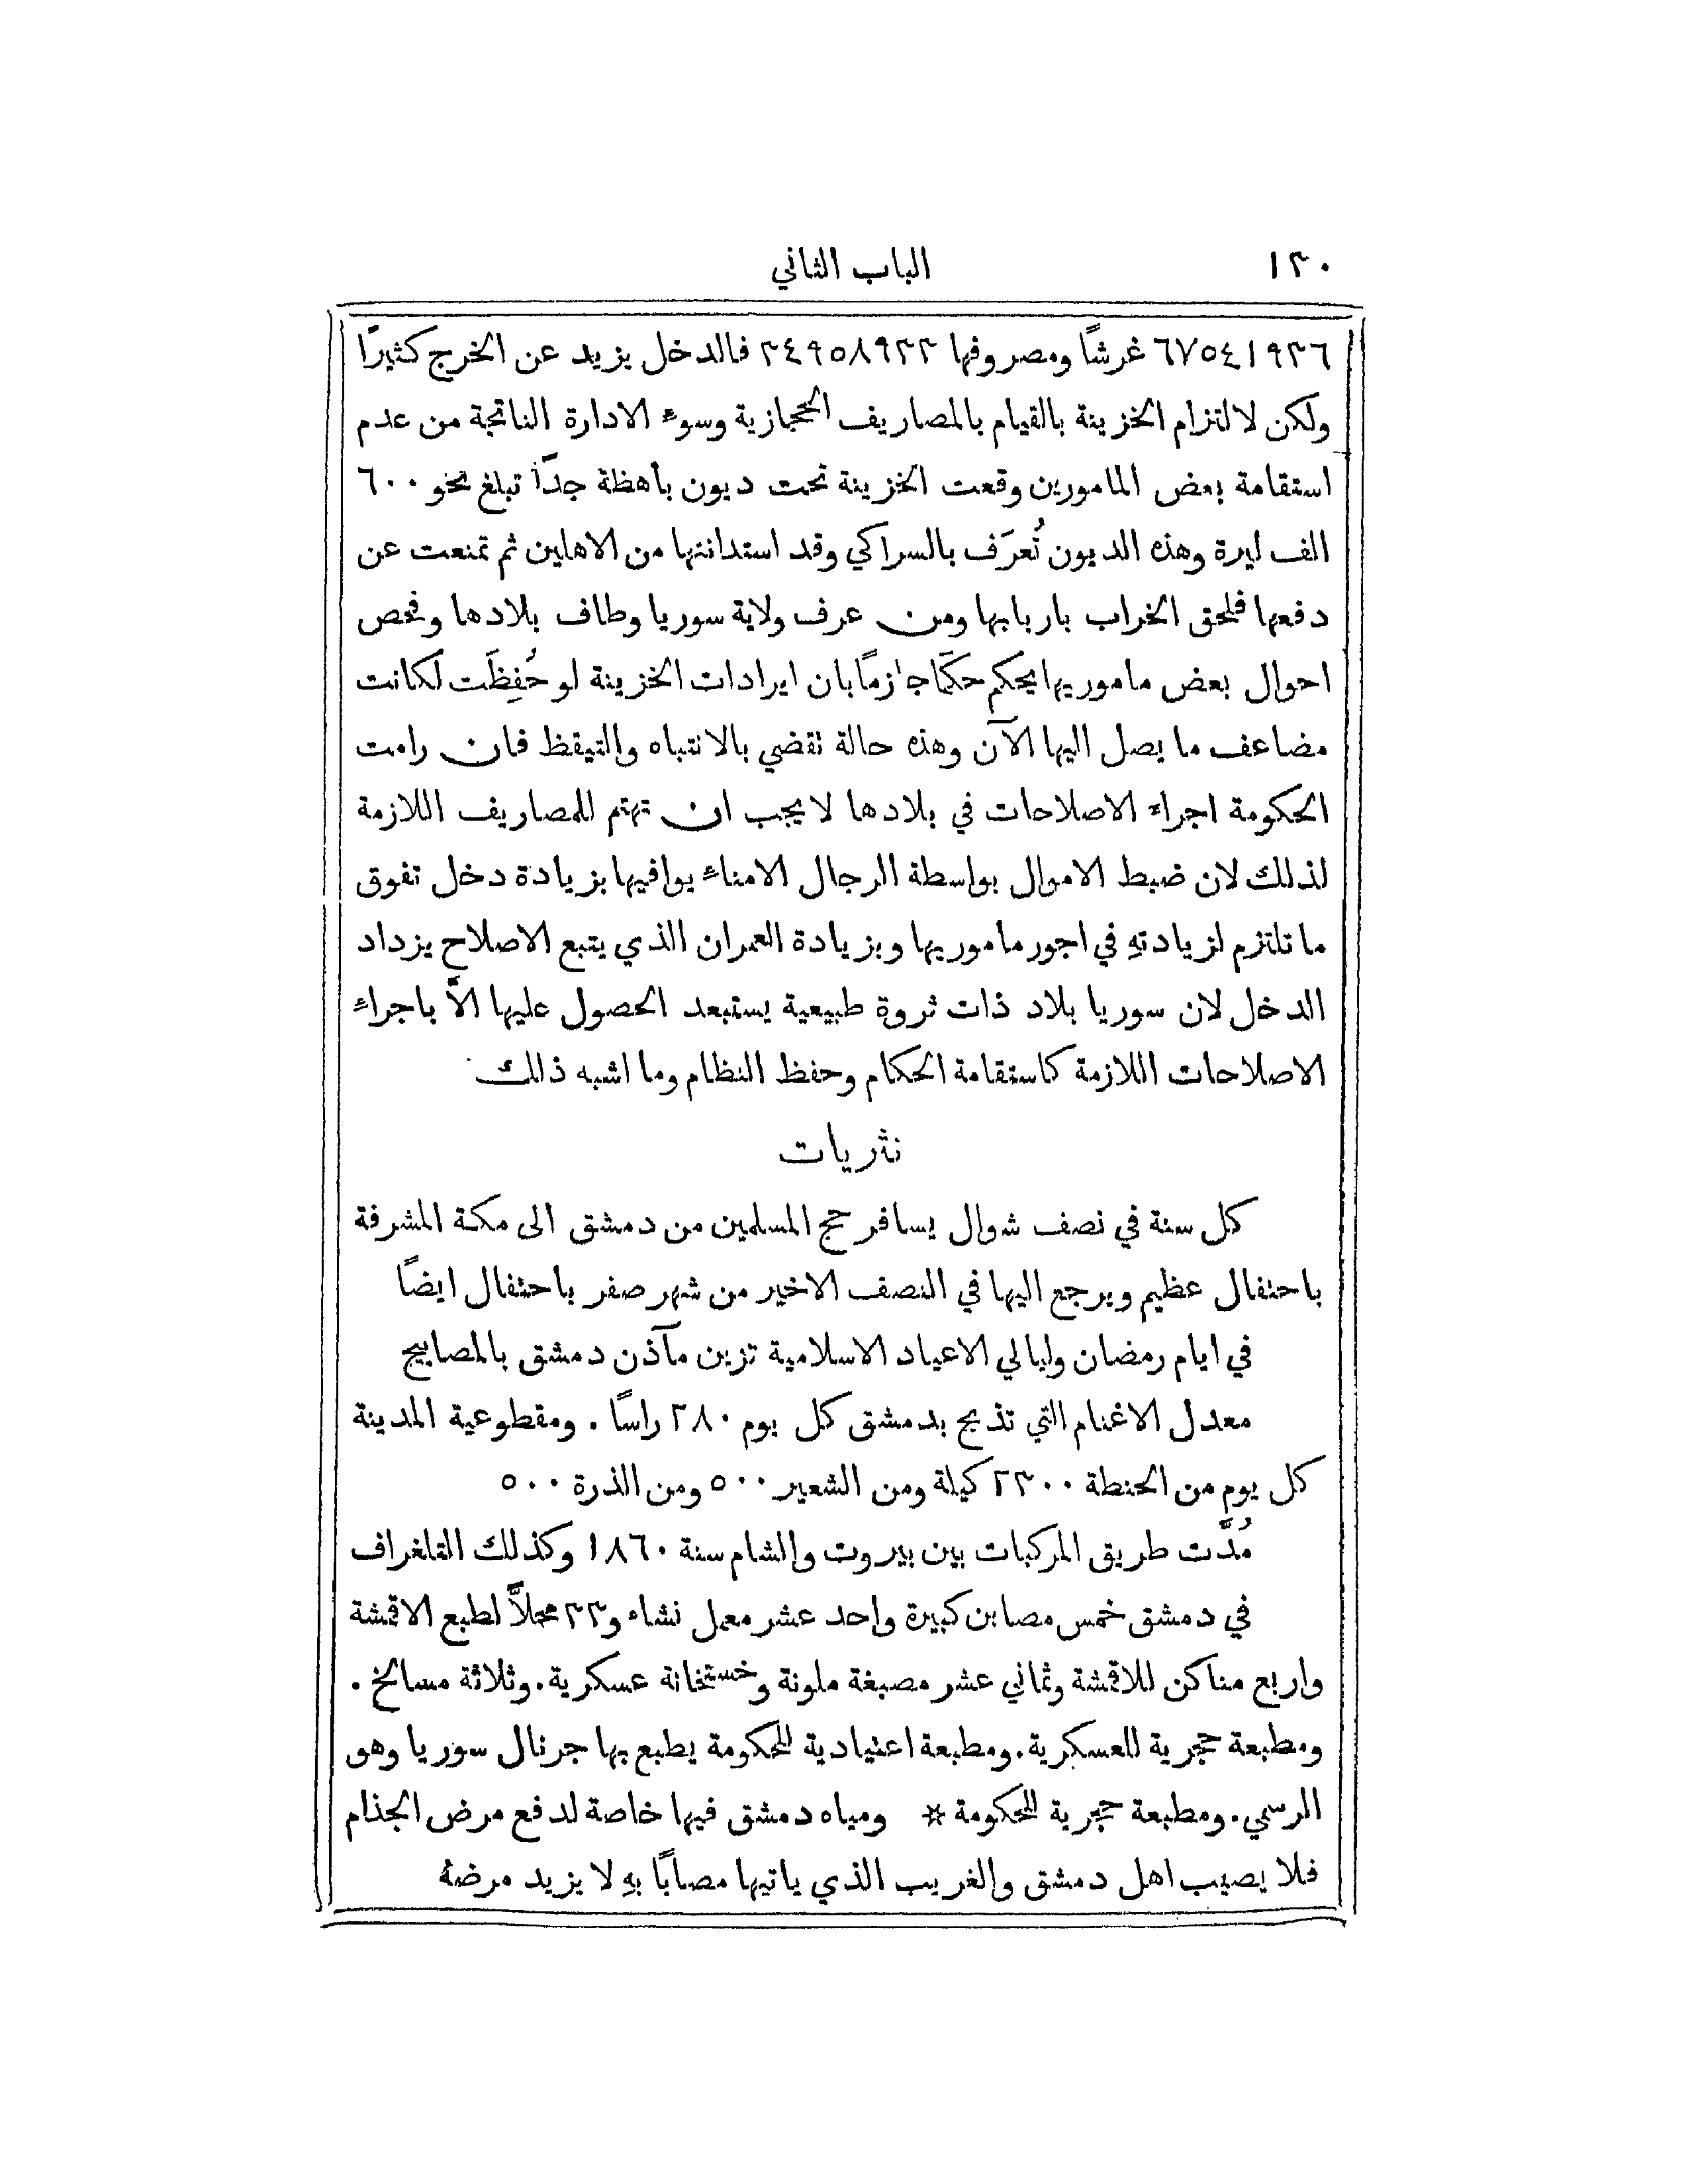 ١٣٠ الباب الثاني
٦٧٥٤١٩٣٦ غرشًا ومصروفها ٣٤٩٥٨٩٣٣ فالدخل يزيد عن الخرج كثيرًا
ولكن لالتزام الخزينة بالقيام بالمصاريف الحجازية وسوء الادارة الناتجة من عدم
استقامة بعض المامورين وقعت الخزينة تحت ديون باهظة جدًا تبلغ نحو ٦٠٠
الف ليرة وهذه الديون تُعرَف بالسراكي وقد استدانتها من الاهلين ثم تمنعت عن
دفعها فلحق الخراب باربابها ومن عرف ولاية سوريا وطاف بلادها وفحص
احوال بعض ماموريها يحكم حكمًا جازمًا بان ايرادات الخزينة لو حُفِظَت لكانت
مضاعف ما يصل اليها الآن وهذه حالة تقضي بالانتباه والتيقظ فان رامت
الحكومة اجراء الاصلاحات في بلادها لا يجب ان تهتم للمصاريف اللازمة
لذلك لان ضبط الاموال بواسطة الرجال الامناء يوافيها بزيادة دخل تفوق
ما تلتزم لزيادتهِ في اجور ماموريها وبزيادة العمران الذي يتبع الاصلاح يزداد
الدخل لان سوريا بلاد ذات ثروة طبيعية يستبعد الحصول عليها الاَّ باجراء
الاصلاحات اللازمة كاستقامة الحكام وحفظ النظام وما اشبه ذلك
نثريات
كل سنة في نصف شوال يسافر حج المسلمين من دمشق الى مكة المشرفة
باحتفال عظيم ويرجع اليها في النصف الاخير من شهر صفر باحتفال ايضًا
في ايام رمضان وليالي الاعياد الاسلامية تزين مآذن دمشق بالمصابيح
معدل الاغنام التي تذبح بدمشق كل يوم ٢٨٠ راسًا . ومقطوعية المدينة
كل يوم من الحنطة ٢٣٠٠ كيلة ومن الشعير ٥٠٠ ومن الذرة ٥٠٠
مُدَّت طريق المركبات بين بيروت والشام سنة ١٨٦٠ وكذلك التلغراف
في دمشق خمس مصابن كبيرة واحد عشر معمل نشاء و٣٣ محلاًّ لطبع الاقمشة
واربع مناكن للاقمشة وثماني عشر مصبغة ملونة وخستخانة عسكرية. وثلاثة مسالخ .
ومطبعة حجرية للعسكرية. ومطبعة اعتيادية للحكومة يطبع بها جرنال سوريا وهو
الرسمي. ومطبعة حجرية للحكومة * ومياه دمشق فيها خاصة لدفع مرض الجذام
فلا يصيب اهل دمشق والغريب الذي ياتيها مصابًا بهِ لا يزيد مرضهُ